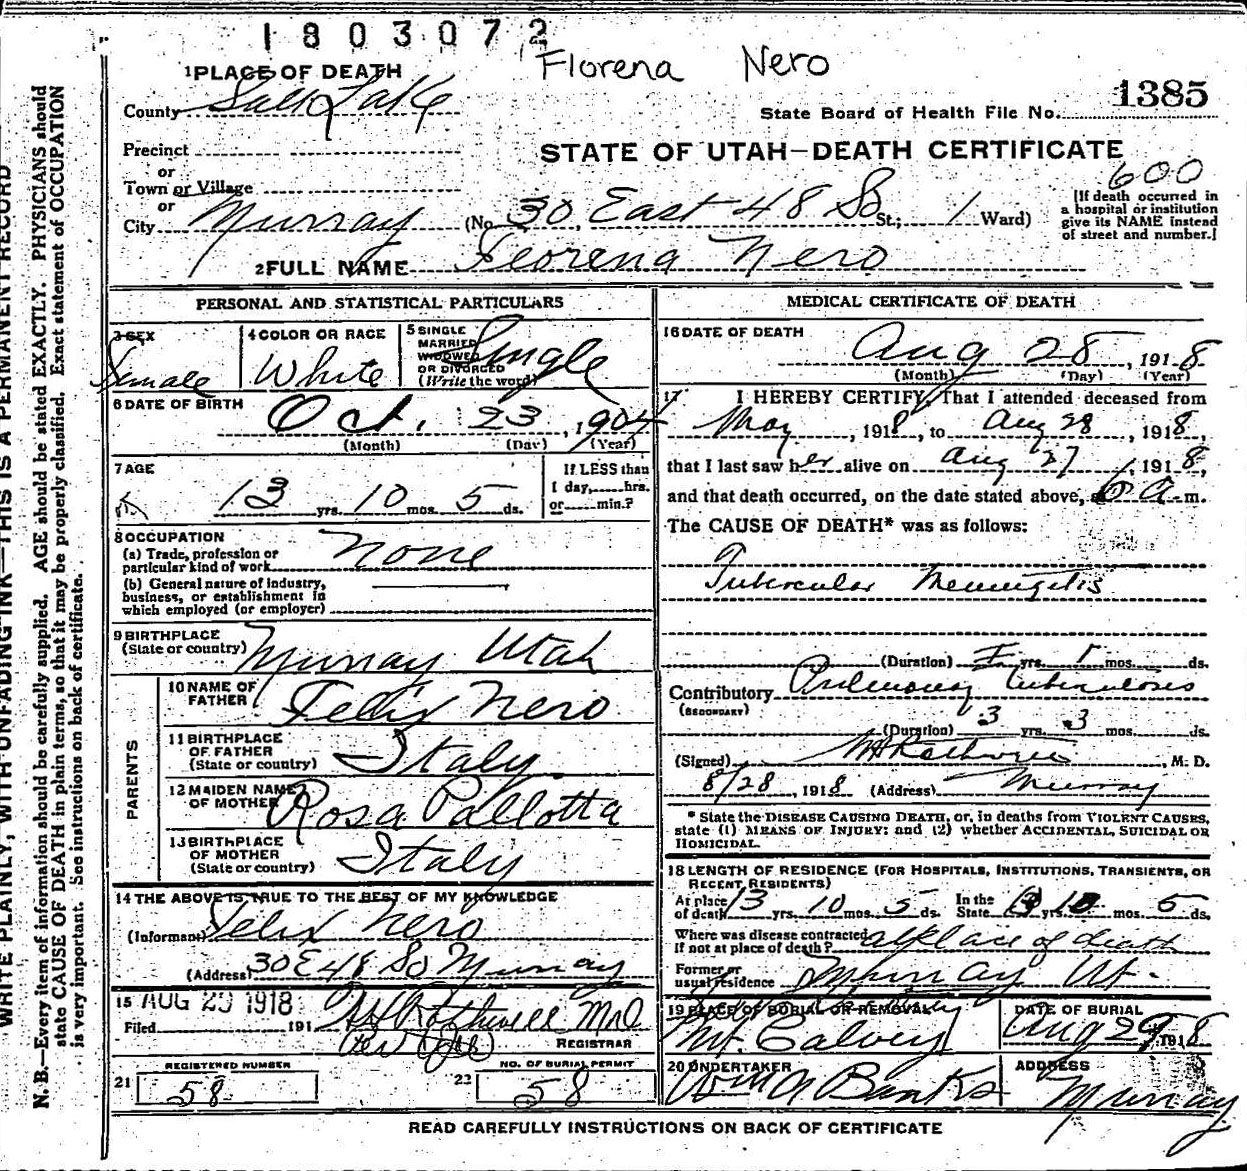 1803072
Florena Nero
1 PLACE OF DEATH
County Salt Lake
State Board of Health File No. 1385
Precinct
or
Town or Village
or
City Murray
STATE OF UTAH—DEATH CERTIFICATE
600
(No. 30 East 48 So St.; 1 Ward)
[If death occurred in
a hospital or institution
give its NAME instead
of street and number.]
2 FULL NAME Florena Nero
PERSONAL AND STATISTICAL PARTICULARS
3 SEX
Female
4 COLOR OR RACE
White
5 SINGLE
MARRIED
WIDOWED
OR DIVORCED
(Write the word)
Single
6 DATE OF BIRTH
Oct. 23, 1904
(Month) (Day) (Year)
7 AGE
13 yrs. 10 mos. 5 ds.
If LESS than
1 day,......hrs.
or......min.?
8 OCCUPATION
(a) Trade, profession or
particular kind of work None
(b) General nature of industry,
business, or establishment in
which employed (or employer)
9 BIRTHPLACE
(State or country) Murray Utah
PARENTS
10 NAME OF
FATHER Felix Nero
11 BIRTHPLACE
OF FATHER
(State or country) Italy
12 MAIDEN NAME
OF MOTHER Rosa Pallotta
13 BIRTHPLACE
OF MOTHER
(State or country) Italy
14 THE ABOVE IS TRUE TO THE BEST OF MY KNOWLEDGE
(Informant) Felix Nero
(Address) 30 E 48 So Murray
15 AUG 29 1918
Filed 191
H Rothwell M.D.
REGISTRAR
REGISTERED NUMBER
21 58
NO. OF BURIAL PERMIT
22 58
MEDICAL CERTIFICATE OF DEATH
16 DATE OF DEATH
Aug 28, 1918
(Month) (Day) (Year)
17 I HEREBY CERTIFY, That I attended deceased from
May, 1918, to Aug 28, 1918,
that I last saw her alive on Aug 27, 1918,
and that death occurred, on the date stated above, at 6 a.m.
The CAUSE OF DEATH* was as follows:
Tubercular Meningitis
(Duration) yrs. 1 mos. ds.
Contributory Pulmonary Tuberculosis
(SECONDARY)
(Duration) 3 yrs. 3 mos. ds.
(Signed) H Rothwell, M. D.
8/28, 1918 (Address) Murray
* State the DISEASE CAUSING DEATH, or, in deaths from VIOLENT CAUSES,
state (1) MEANS OF INJURY; and (2) whether ACCIDENTAL, SUICIDAL OR
HOMICIDAL.
18 LENGTH OF RESIDENCE (FOR HOSPITALS, INSTITUTIONS, TRANSIENTS, OR
RECENT RESIDENTS)
At place
of death 13 yrs. 10 mos. 5 ds.
In the
State 13 yrs. 10 mos. 5 ds.
Where was disease contracted
If not at place of death? at place of death
Former or
usual residence Murray Ut.
19 PLACE OF BURIAL OR REMOVAL
Mt. Calvery
DATE OF BURIAL
Aug 29, 1918
20 UNDERTAKER
Wm N Banks
ADDRESS
Murray
READ CAREFULLY INSTRUCTIONS ON BACK OF CERTIFICATE
WRITE PLAINLY, WITH UNFADING INK—THIS IS A PERMANENT RECORD
N. B.—Every item of information should be carefully supplied. AGE should be stated EXACTLY. PHYSICIANS should
state CAUSE OF DEATH in plain terms, so that it may be properly classified. Exact statement of OCCUPATION
is very important. See instructions on back of certificate.